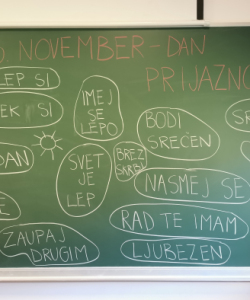 NOVEMBER - DAN
PRIJAZNO
LEP SI
IMEJ
SE
LEPO
BODI
SREČEN
SVET
JE
LEP
BREZ
SKRBI
NASMEJ SE
RAD TE IMAM
ZAUPAJ
DRUGIM
LJUBEZEN